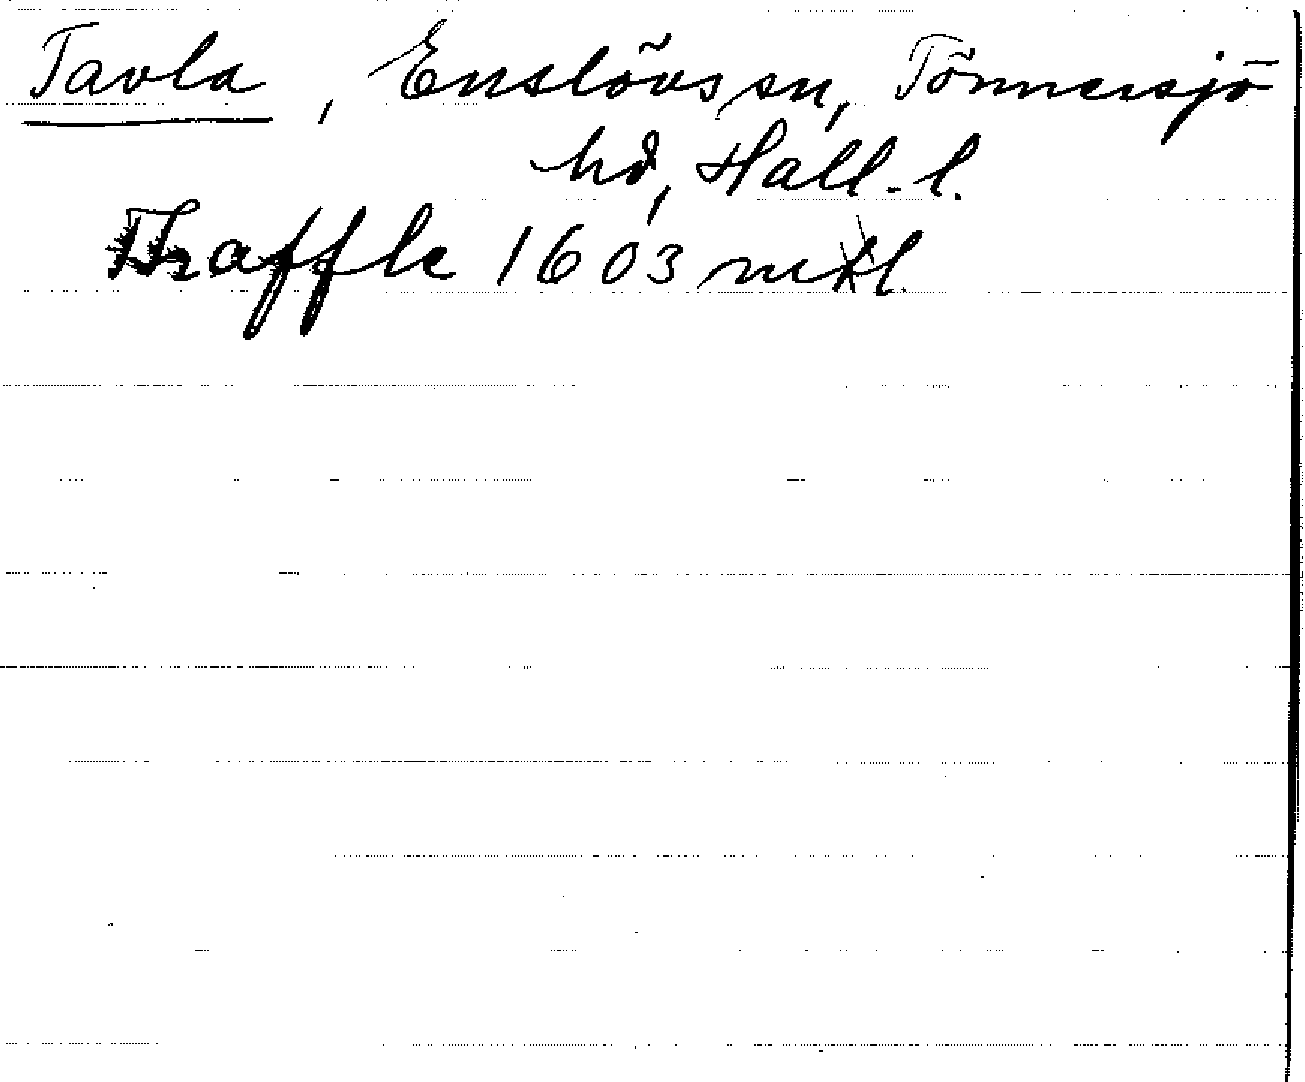 Tavla, Enslövs sn, Tönnersjö
hd, Hall. l.
Traffle 1603 mtl.